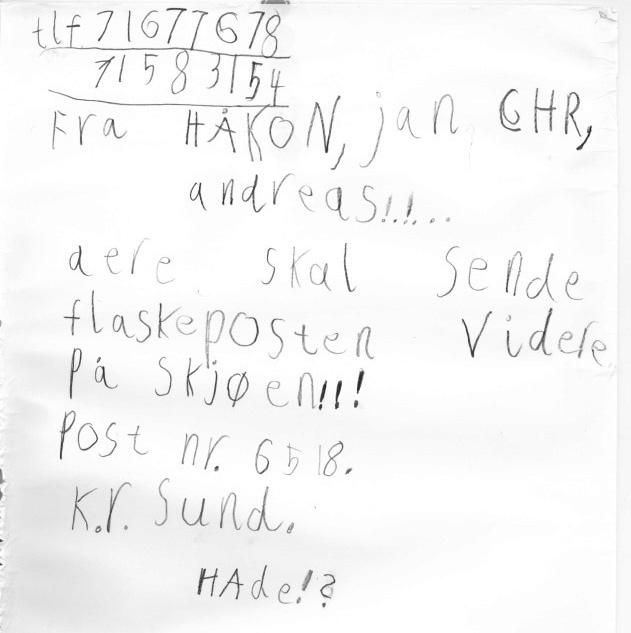 tlf 71677678
71583154
Fra HÅKON, jan CHR,
andreas!!...
dere skal sende
flaskeposten videre
På skjøen!!!
Post nr. 6518.
K.r. Sund.
HAde!?